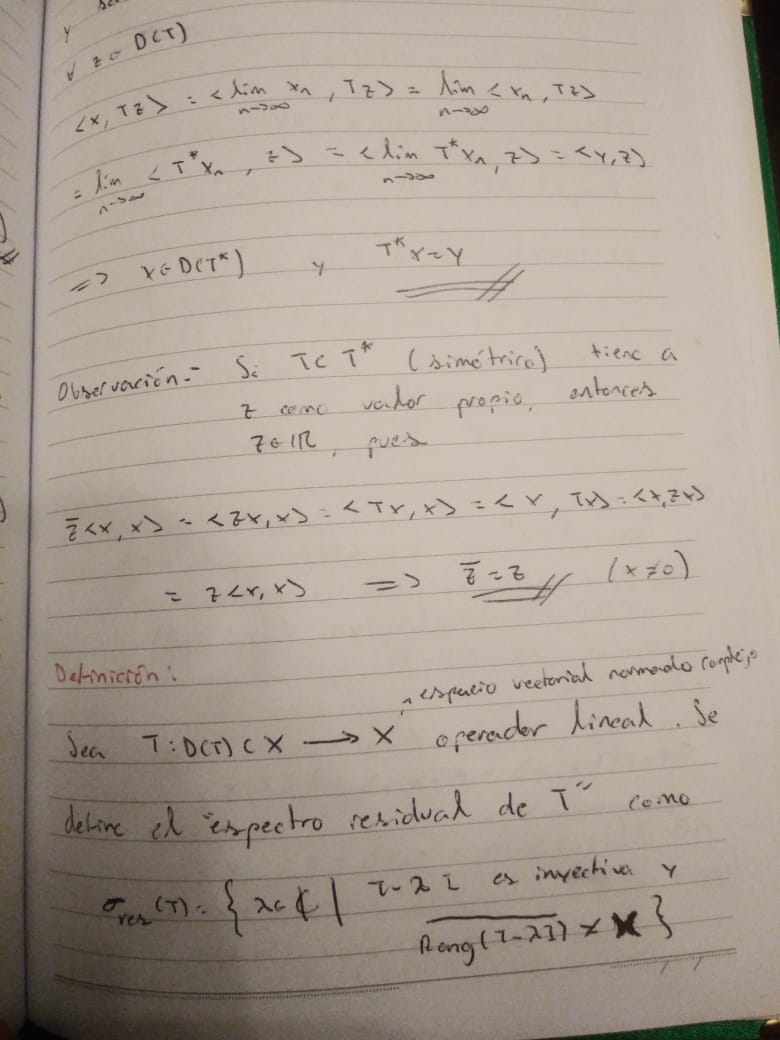 y se
∀ z ∈ D(T)
<x, Tz> = <lim x_n , Tz> = lim <x_n, Tz>
n→∞ n→∞
= lim <T*x_n , z> = <lim T*x_n, z> = <y, z>
n→∞ n→∞
=> x ∈ D(T*) y T*x = y
Observación.- Si T ⊂ T* (simétrico) tiene a
z como valor propio, entonces
z ∈ ℝ, pues
z̄<x, x> = <zx, x> = <Tx, x> = <x, Tx> = <x, zx>
= z<x, x> => z̄ = z (x ≠ 0)
Definición:
espacio vectorial normado complejo
Sea T : D(T) ⊂ X → X operador lineal. Se
define el "espectro residual de T" como
σ_res(T) = { λ ∈ ℂ | T - λI es inyectiva y
\overline{Rang(T - λI)} ≠ X }